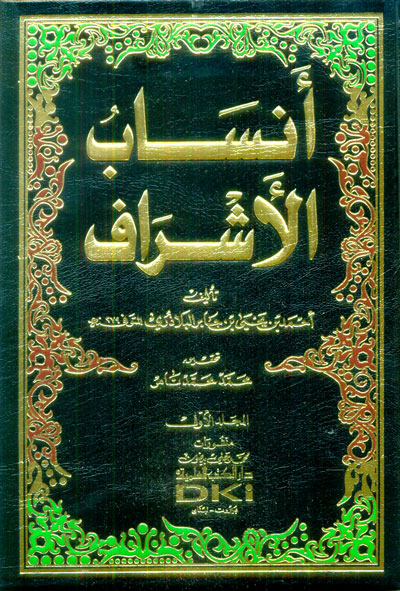 أَنسَابُ
الأَشْرَاف
تأليف
أحمد بن يحيى بن جابر البلاذري المتوفى ٢٧٩ هـ
تحقيق
محمد محمد تامر
المجلد الأول
منشورات
محمد علي بيضون
دار الكتب العلمية
DKi
بيروت - لبنان